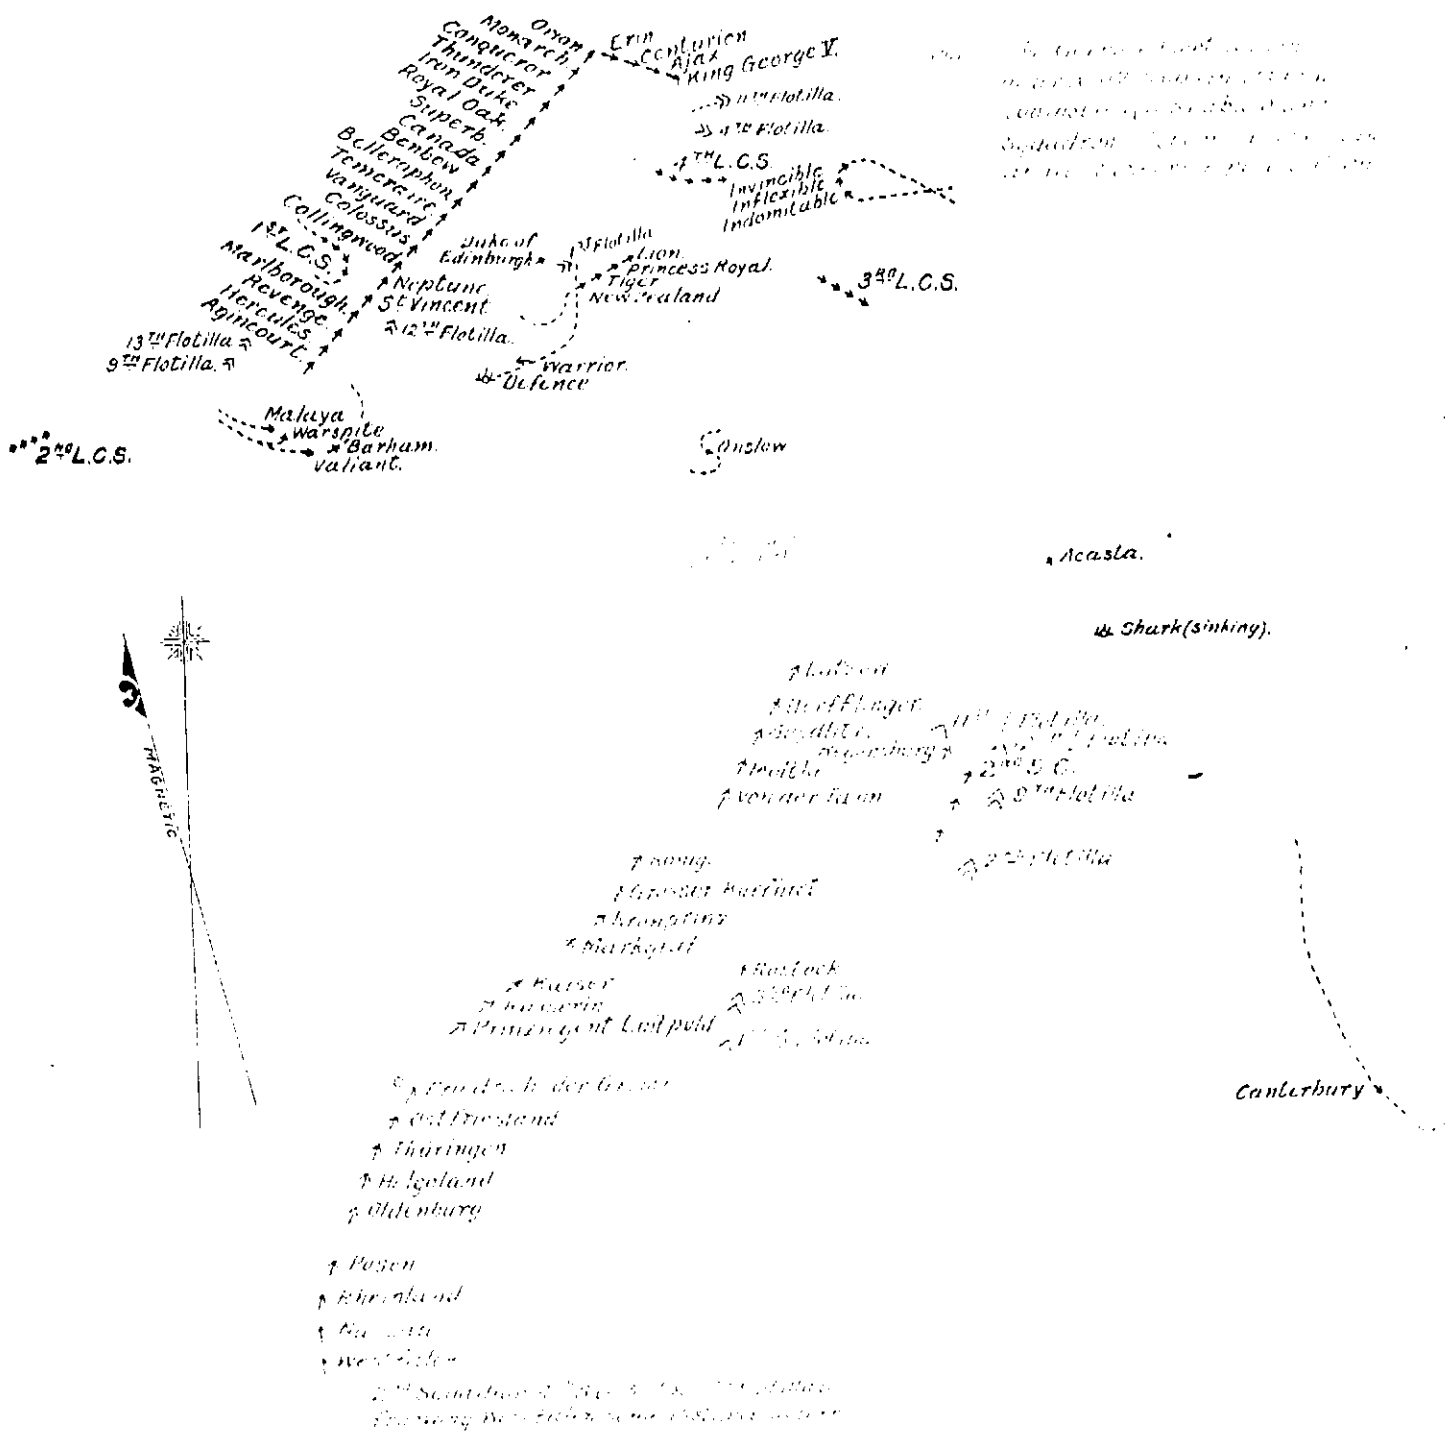 Orion
Monarch.
Conqueror
Thunderer
Iron Duke
Royal Oak.
Superb.
Canada
Benbow
Bellerophon.
Temeraire.
Vanguard
Colossus
Collingwood
1ST L.C.S.
Marlborough.
Revenge.
Hercules.
Agincourt.
13TH Flotilla
9TH Flotilla.
Erin
Centurion
Ajax
King George V.
11TH Flotilla.
4TH Flotilla.
4TH L.C.S.
Invincible
Inflexible
Indomitable
Duke of
Edinburgh
1ST Flotilla
Lion.
Princess Royal.
Tiger
New Zealand
3RD L.C.S.
Neptune.
St Vincent
12TH Flotilla.
Warrior.
Defence
Malaya
Warspite
Barham.
Valiant.
2ND L.C.S.
Onslow
Acasta.
Shark (sinking).
MAGNETIC
Lutzow
Derfflinger.
Seydlitz.
Moltke
Von der Tann
Regensburg
11TH Flotilla.
Flotilla
2ND S.G.
9TH Flotilla
2ND Flotilla
König.
Grosser Kurfürst
Kronprinz
Markgraf
Kaiser
Kaiserin
Prinzregent Luitpold
Rostock
3RD Flotilla
Flotilla
Friedrich der Grosse
Ostfriesland
Thüringen
Helgoland
Oldenburg
Canterbury
Posen
Rheinland
Nassau
Westfalen
2ND Squadron